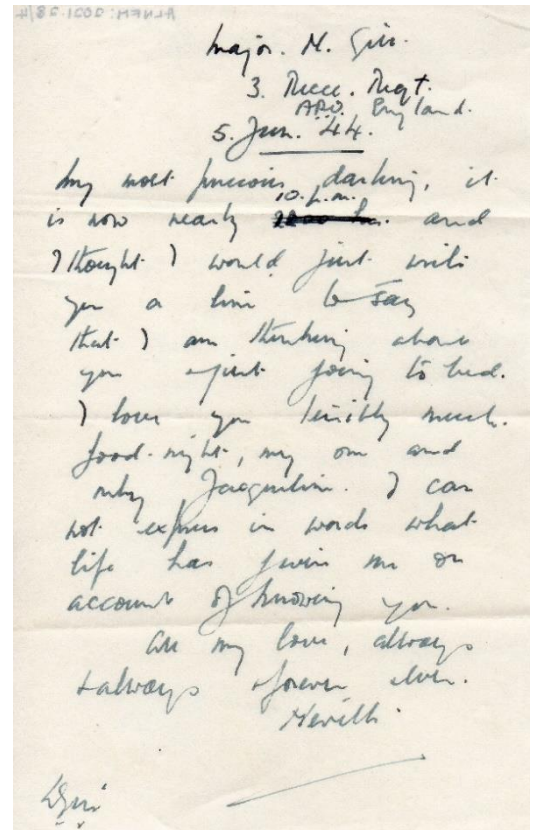 Major. N. Gill.
3. Recce. Regt.
APO. England.
5. Jun. 44.
My most precious darling, it
is now nearly 10. p.m. and
I thought I would just write
you a line to say
that I am thinking about
you & just going to bed.
I love you terribly much.
Good-night, my own and
only Jacqueline. I can
not express in words what
life has given me on
account of knowing you.
All my love, always
& always & forever & ever.
Neville.